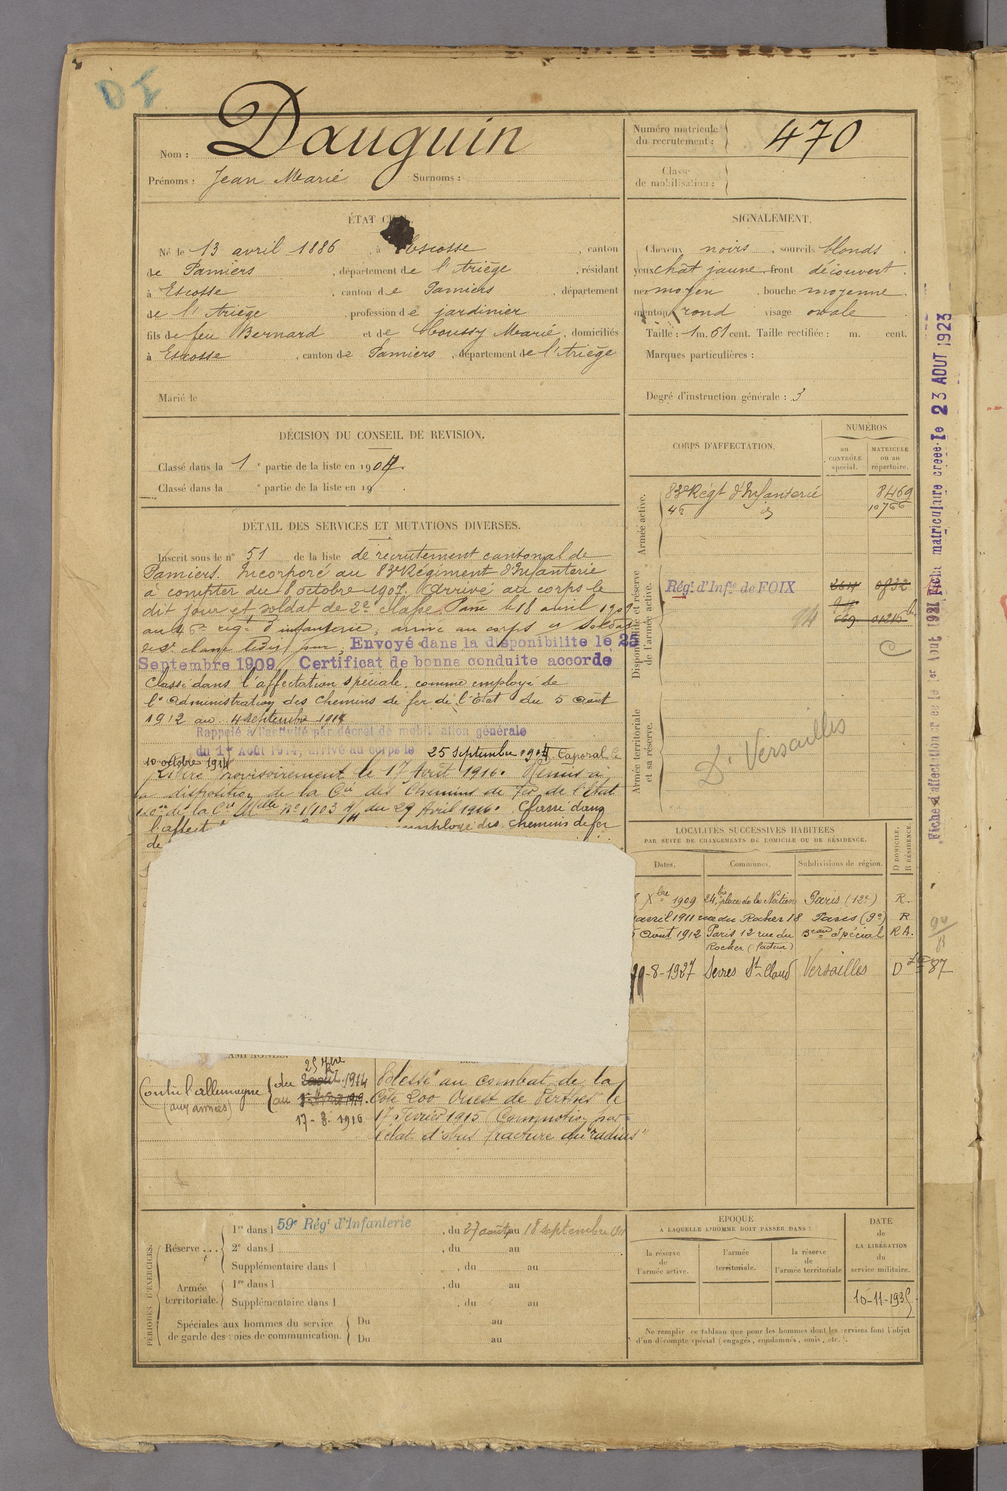 DI
Nom : Dauguin
Prénoms : Jean Marie Surnoms :
Numéro matricule du recrutement : 470
Classe de mobilisation :
ÉTAT CIVIL.
Né le 13 avril 1886, à Escosse, canton
de Pamiers, département de l'Ariège, résidant
à Escosse, canton de Pamiers, département
de l'Ariège, profession de jardinier
fils de feu Bernard et de Coussy Marie, domiciliés
à Escosse, canton de Pamiers, département de l'Ariège
Marié le
SIGNALEMENT.
Cheveux noirs, sourcils blonds
yeux chat jaune, front découvert
nez moyen, bouche moyenne
menton rond visage ovale
Taille : 1 m. 61 cent. Taille rectifiée : m. cent.
Marques particulières :
Degré d'instruction générale : 3
DÉCISION DU CONSEIL DE REVISION.
Classé dans la 1e partie de la liste en 1907.
Classé dans la e partie de la liste en 19
DÉTAIL DES SERVICES ET MUTATIONS DIVERSES.
Inscrit sous le n° 51 de la liste de recrutement cantonal de
Pamiers. Incorporé au 83e Régiment d'Infanterie
à compter du 8 octobre 1907. Arrivé au corps le
dit jour et soldat de 2e classe. Passé le 18 avril 1909
au 46e régt d'infanterie, arrivé au corps et soldat
de 2e classe ledit jour. Envoyé dans la disponibilité le 25
Septembre 1909 Certificat de bonne conduite accordé
Classé dans l'affectation spéciale, comme employé de
l'administration des chemins de fer de l'Etat du 5 Août
1912 au 4 septembre 1914
Rappelé à l'activité par décret de mobilisation générale
du 1er Août 1914, arrivé au corps le 25 septembre 1914 Caporal le
10 octobre 1914
Libéré provisoirement le 17 Août 1916. Remis à
la disposition de la Cie des Chemins de Fer de l'Etat
de la Cie Mlle N° 1103 du 29 Avril 1916. Classé dans
l'affect employé des chemins de fer
de
CORPS D'AFFECTATION.
NUMÉROS
au CONTRÔLE spécial.
MATRICULE ou au répertoire.
Armée active.
83e Régt d'Infanterie 8469
46 d° 10766
Disponibilité et réserve de l'armée active.
Régt d'Infie de FOIX
Armée territoriale et sa réserve.
Dt Versailles
LOCALITÉS SUCCESSIVES HABITÉES
PAR SUITE DE CHANGEMENTS DE DOMICILE OU DE RÉSIDENCE.
Dates. Communes. Subdivisions de région. D DOMICILE. R RÉSIDENCE
Xbre 1909 24bis place de la Nation Paris (12e) R.
avril 1911 rue du Rocher 18 Paris (9e) R
5 Août 1912 Paris 12 rue du Rocher (facteur) Beau Spécial R A.
-8-1927 Sevres St-Cloud Versailles D 87
CAMPAGNES.
Contre l'allemagne (aux armées) du 25 7bre 1914
au 17-8-1916
Blessé au combat de la
Cote 200 Ouest de Perthes le
17 Février 1915 Commotion par
éclat d'obus fracture du radius"
PÉRIODES D'EXERCICES.
Réserve ... 1re dans l 59e Régt d'Infanterie, du 27 août au 18 septembre 1911
2e dans l , du au
Supplémentaire dans l , du au
Armée territoriale. 1re dans l , du au
Supplémentaire dans l , du au
Spéciales aux hommes du service de garde des voies de communication. Du au
Du au
ÉPOQUE
A LAQUELLE L'HOMME DOIT PASSER DANS :
la réserve de l'armée active.
l'armée territoriale.
la réserve de l'armée territoriale
DATE de LA LIBÉRATION du service militaire.
10-11-1935
Ne remplir ce tableau que pour les hommes dont les services font l'objet
d'un décompte spécial (engagés, condamnés, omis, etc.).
Fiche matriculaire créée le 23 AOUT 1923